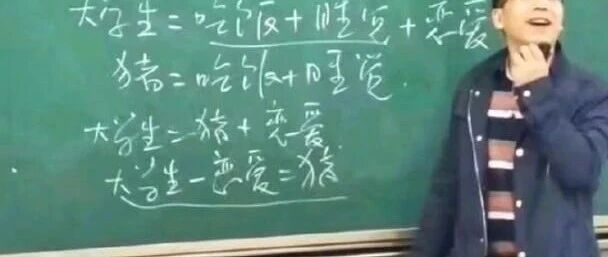 大学生=吃饭+睡觉+恋爱
猪=吃饭+睡觉.
大学生=猪+恋爱
大学生-恋爱=猪